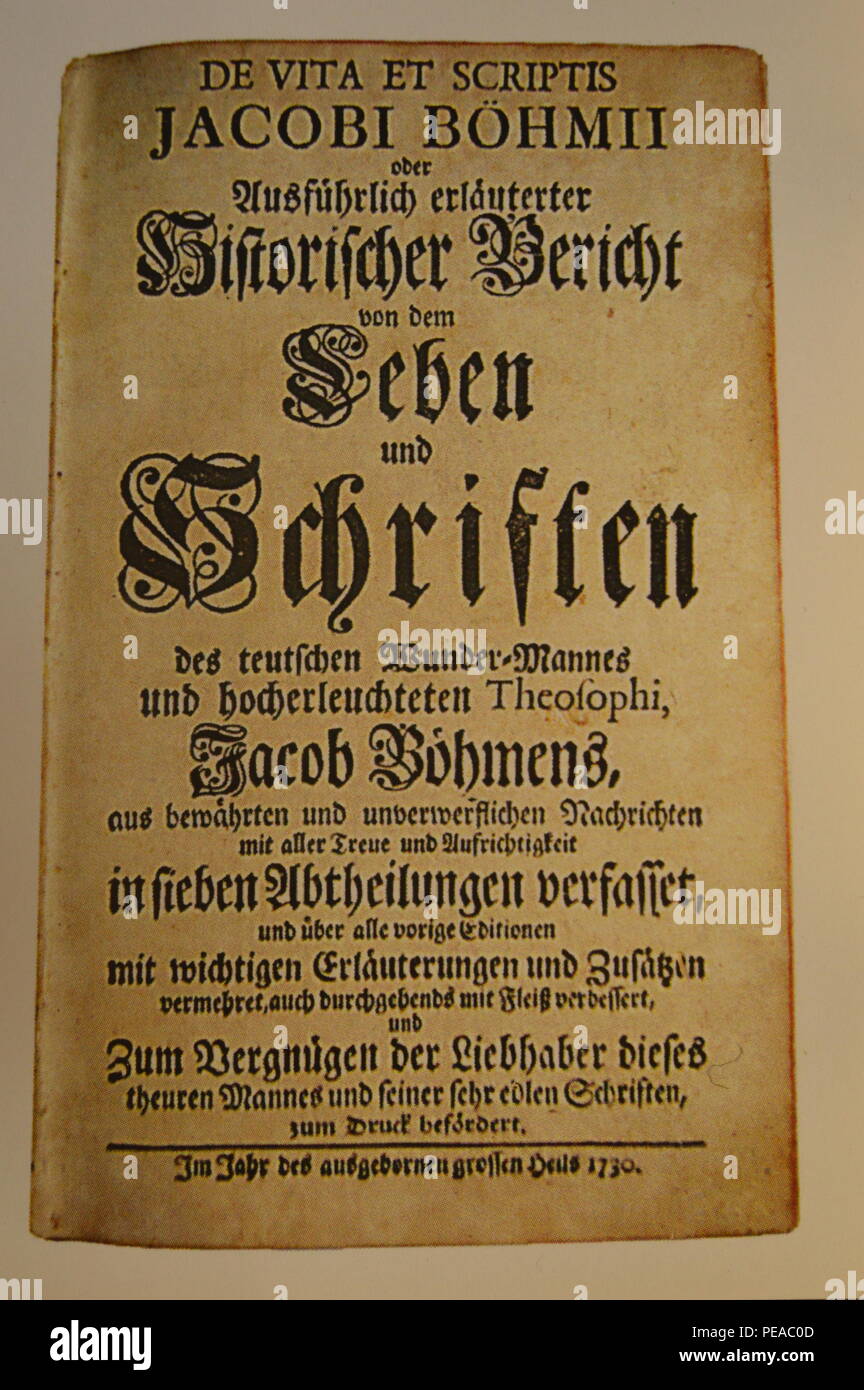 DE VITA ET SCRIPTIS
JACOBI BÖHMII
oder
Ausführlich erläuterter
Historischer Bericht
von dem
Leben
und
Schriften
des teutschen Wunder-Mannes
und hocherleuchteten Theosophi,
Jacob Böhmens,
aus bewährten und unverwerflichen Nachrichten
mit aller Treue und Aufrichtigkeit
in sieben Abtheilungen verfasset,
und über alle vorige Editionen
mit wichtigen Erläuterungen und Zusätzen
vermehret, auch durchgehends mit Fleiß verbessert,
und
Zum Vergnügen der Liebhaber dieses
theuren Mannes und seiner sehr edlen Schriften,
zum Druck befördert.
Im Jahr des ausgebornen grossen Heils 1730.
alamy
a
alamy stock photo
Image ID: PEAC0D
www.alamy.com